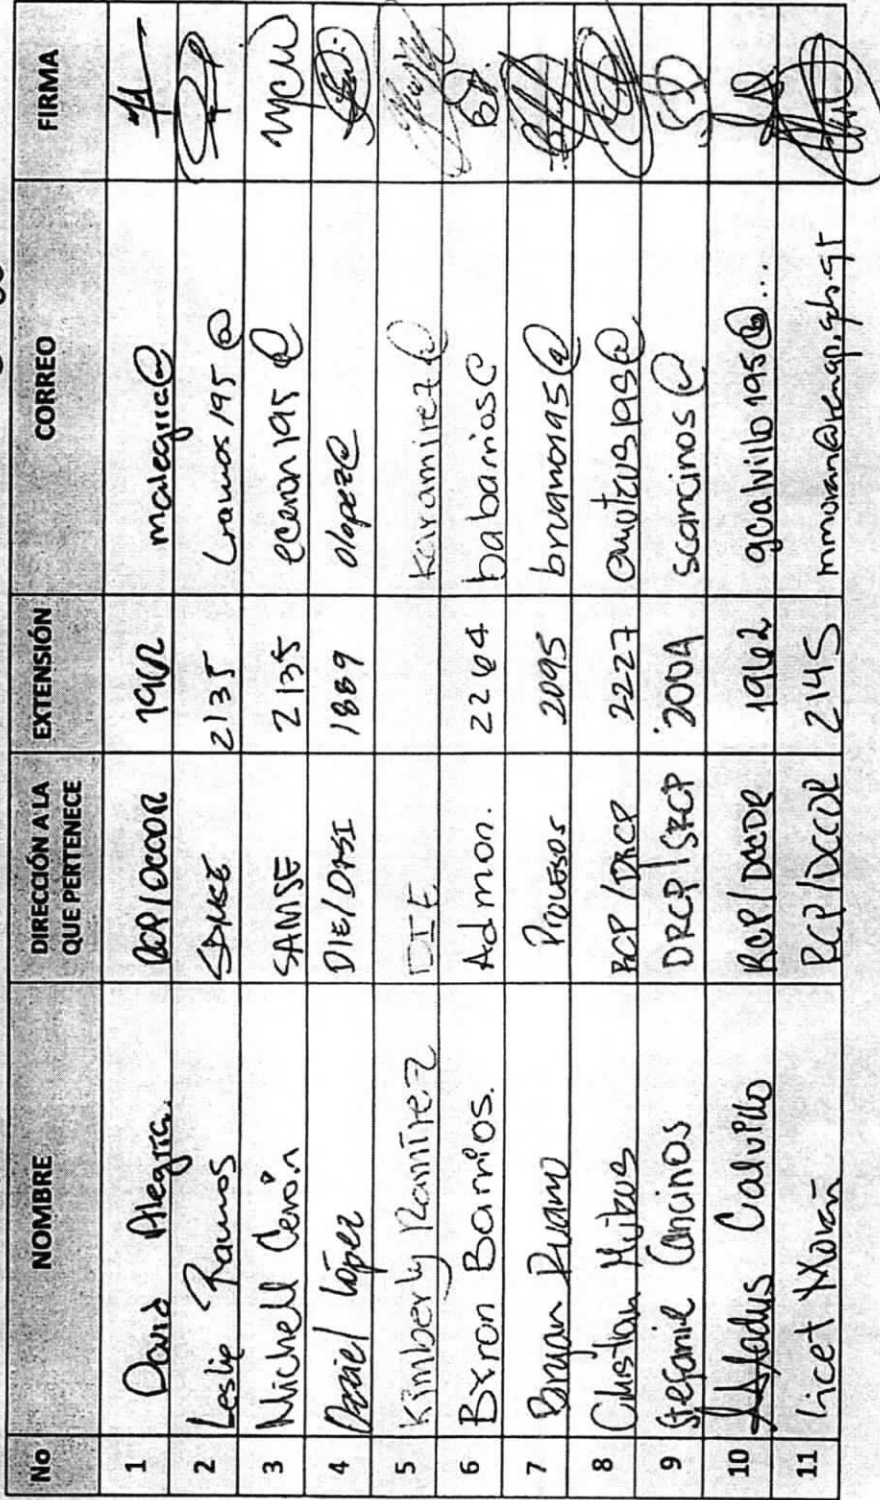 No NOMBRE DIRECCIÓN A LA QUE PERTENECE EXTENSIÓN CORREO FIRMA
1 David Alegría. RCP/DCCDR 1962 malegria@
2 Leslie Ramos SAMSE 2135 lramos195@
3 Michell Cerón SAMSE 2135 eceron195@
4 Daniel López DIE/DTSI 1889 olopez@
5 Kimberly Ramírez DIE karamirez@
6 Byron Barrios. Admon. 2264 babarrios@
7 Bryan Ruano Procesos 2095 bruano195@
8 Christian RCP/DRCP 2227
9 Stefanie Cancinos DRCP/SRCP 2004 scancinos@
10 Calvillo RCP/DCCDR 1962 gcalvillo195@...
11 Licet Morán RCP/DCCDR 2145